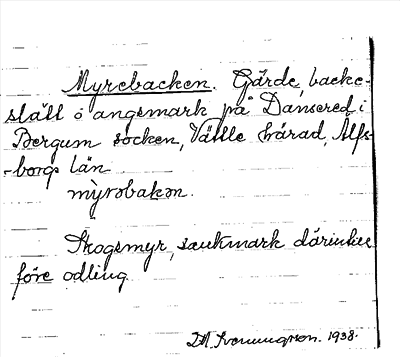 Myrebacken. Gärde, backe-
slätt o ängsmark på Dansered i
Bergum socken, Vättle härad, Älfs-
-borgs län
mỳrəbakən.
Skogsmyr, sankmark därinhe
före odling